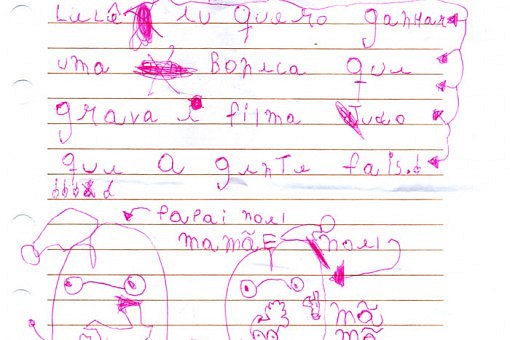 LULÚ EU QUERO GANHAR
UMA BONECA QUE
GRAVA E FILMA TUDO
QUE A GENTE FAIS.
PAPAI NOEL
MAMÃE NOEL
MÃ
MÃ